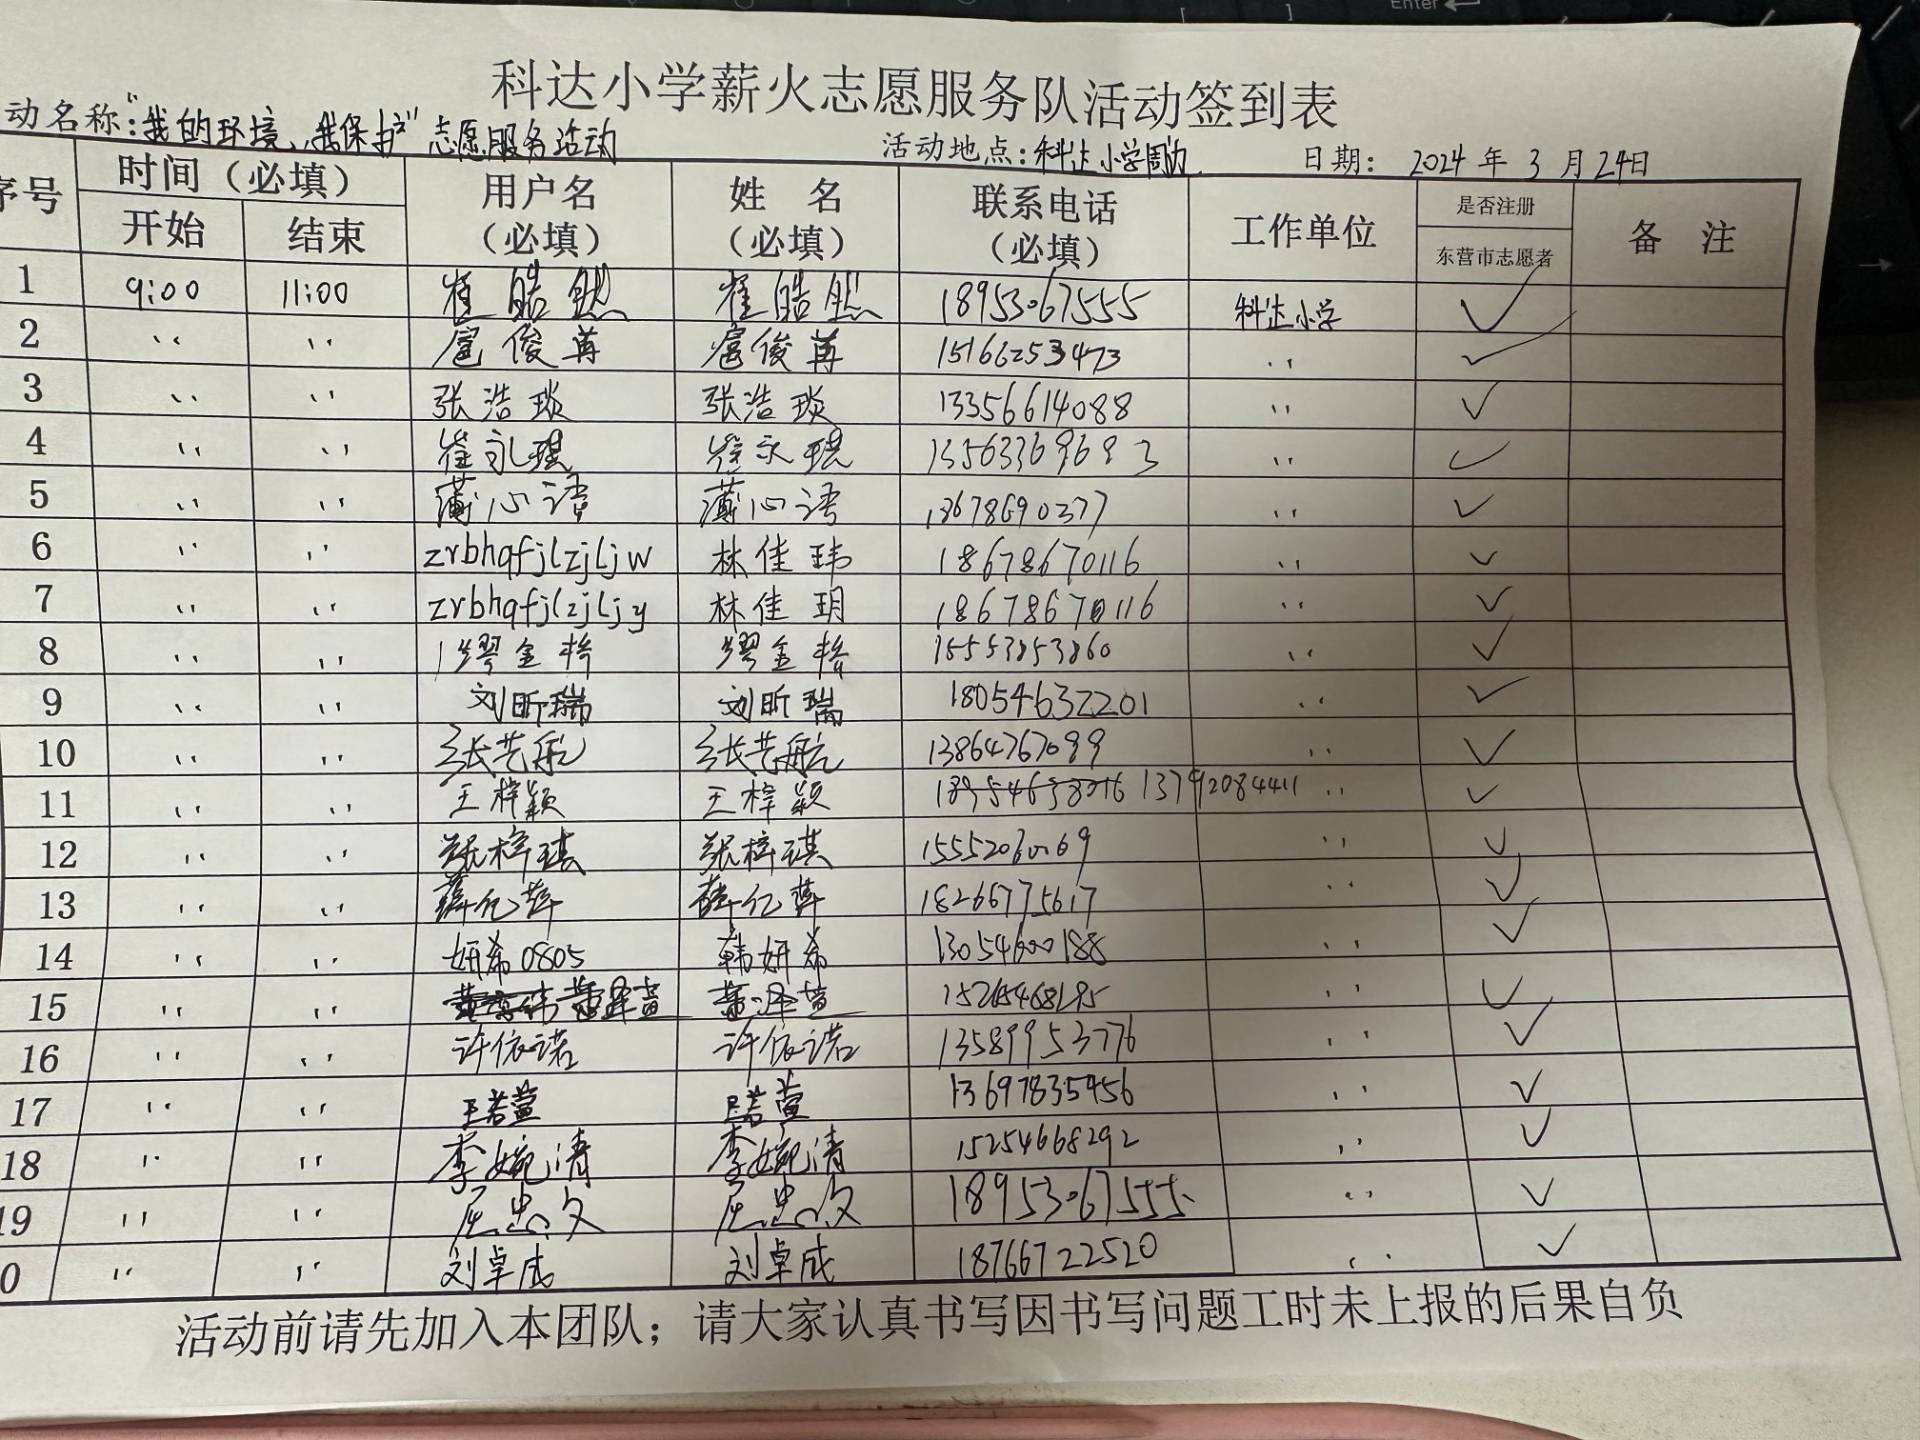 科达小学薪火志愿服务队活动签到表
动名称:"我的环境、我保护"志愿服务活动 活动地点:科达小学周边 日期: 2024年3月24日
序号 时间(必填) 用户名(必填) 姓 名(必填) 联系电话(必填) 工作单位 是否注册 备 注
开始 结束 东营市志愿者
1 9:00 11:00 崔皓然 崔皓然 18953067555 科达小学 ✓
2 〃 〃 扈俊苒 扈俊苒 15166253473 〃 ✓
3 〃 〃 张浩琰 张浩琰 13356614088 〃 ✓
4 〃 〃 崔永琪 崔永琪 〃 ✓
5 〃 〃 薄心语 薄心语 13678690377 〃 ✓
6 〃 〃 zrbhqfjlzjljw 林佳玮 18678670116 〃 ✓
7 〃 〃 zrbhqfjlzjljy 林佳玥 18678670116 〃 ✓
8 〃 〃 缪金 缪金 15553853860 〃 ✓
9 〃 〃 刘昕瑞 刘昕瑞 18054632201 〃 ✓
10 〃 〃 张艺航 张艺航 13864767099 〃 ✓
11 〃 〃 王梓颖 王梓颖 18954638016 13792084411 〃 ✓
12 〃 〃 张梓琪 张梓琪 15552060069 〃 ✓
13 〃 〃 薛亿萍 薛亿萍 18266775617 〃 ✓
14 〃 〃 妍希0805 韩妍希 13054600188 〃 ✓
15 〃 〃 董泽萱 董泽萱 15265468295 〃 ✓
16 〃 〃 许依诺 许依诺 13589953776 〃 ✓
17 〃 〃 王若萱 王若萱 13697835456 〃 ✓
18 〃 〃 李婉清 李婉清 15254668292 〃 ✓
19 〃 〃 屈忠文 屈忠文 18953067555 〃 ✓
0 〃 〃 刘卓成 刘卓成 18766722520 〃 ✓
活动前请先加入本团队；请大家认真书写因书写问题工时未上报的后果自负
Enter